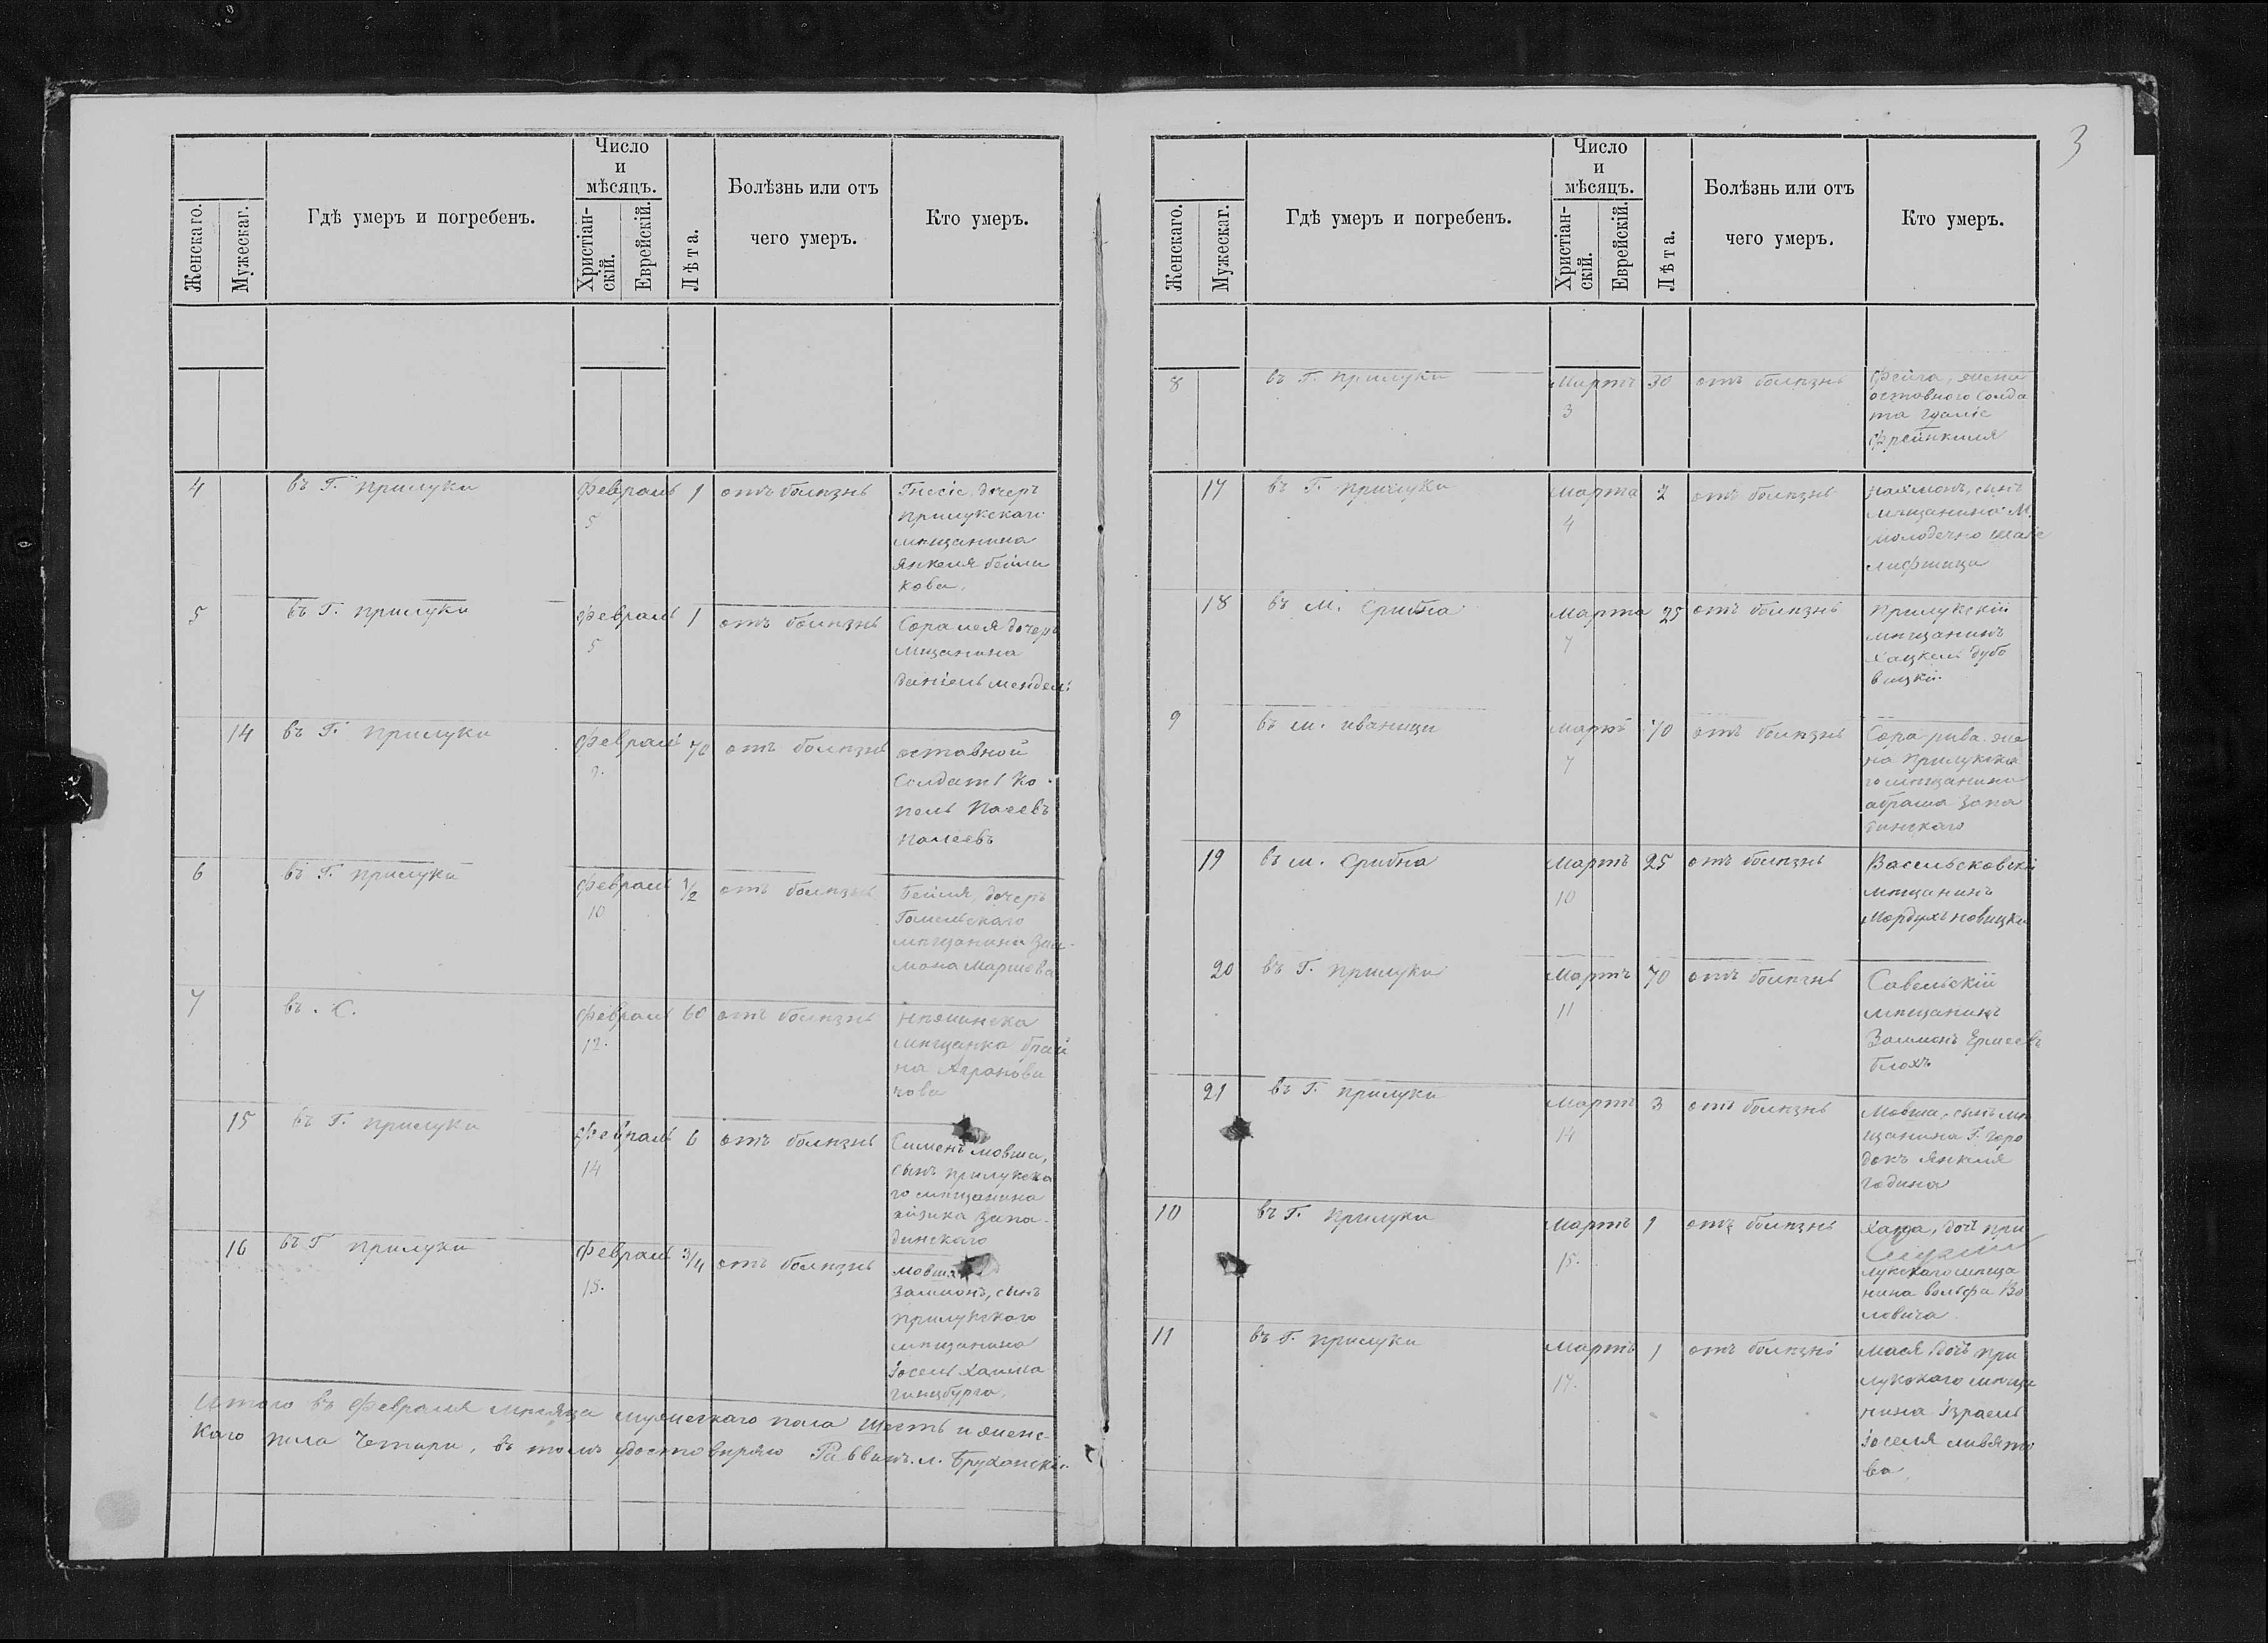 Женскаго.
Мужескаг.
Гдѣ умеръ и погребенъ.
Число
и
мѣсяцъ.
Христіан-
скій.
Еврейскій.
Лѣта.
Болѣзнь или отъ
чего умеръ.
Кто умеръ.
4
въ Г. Прилуки
Февраль
5
1
отъ болѣзнь
Гнесіе, дочеръ
Прилукскаго
мѣщанина
Янкеля
кова.
5
въ Г. Прилуки
Февраль
5
1
отъ болѣзнь
Сора лея дочеръ
мщанина
Даніель Мендел.
14
въ Г. Прилуки
Февраль
70
отъ болѣзнь
оставной
Солдатъ Ко
пель
6
въ Г. Прилуки
Февраль
10
1/2
отъ болѣзнь
Бейля, дочеръ
Гомельскаго
мѣщанина Зал-
мона
7
въ . С.
Февраль
12.
60
отъ болѣзнь
Нѣжинска
мѣщанка
на Агранови
чова
15
въ Г. Прилуки
Февраль
14
6
отъ болѣзнь
Сименъ Мовша,
сынъ Прилукска
го мѣщанина
айзика Запа-
динскаго
16
въ Г Прилуки
Февраль
15.
3/4
отъ болѣзнь
Мовша
Залмонъ, сынъ
Прилукскаго
мѣщанина
Іосель Хаима
Гинцбурга.
Итого въ Февраля мѣсяца мужескаго пола шесть и женс-
каго пола Четыри, въ томъ удостовѣряю Раввинъ. л. Бруханскій.
3
Женскаго.
Мужескаг.
Гдѣ умеръ и погребенъ.
Число
и
мѣсяцъ.
Христіан-
скій.
Еврейскій.
Лѣта.
Болѣзнь или отъ
чего умеръ.
Кто умеръ.
8
въ Г. Прилуки
Мартъ
3
30
отъ болѣзнь
Фейга, жена
оставного Солда
та
Френкиля
17
въ Г. Прилуки
Марта
4
2
отъ болѣзнь
сынъ
мѣщанина М.
Молодечно
Лифшица
18
въ М. Срибна
Марта
7
25
отъ болѣзнь
Прилукскій
мѣщанинъ
Хацкель Дубо
вицкій
9
въ м. иваници
Мартъ
7
70
отъ болѣзнь
Сора рива же
на Прилукска
го мѣщанина
абрама Запа
динскаго
19
въ м. Срибна
Мартъ
10
25
отъ болѣзнь
Васильсковскій
мѣщанинъ
Мордухъ новицки
20
въ Г. Прилуки
Мартъ
11
70
отъ болѣзнь
Мѣщанинъ
Залмонъ
Блохъ
21
въ Г. Прилуки
Мартъ
14
3
отъ болѣзнь
Мовша, сынъ мѣ
щанина Г. Горо
докъ Янкеля
Година
10
въ Г. Прилуки
Мартъ
15.
1
отъ болѣзнь
дочъ при
лукскаго мѣща
нина Вольфа Во
ловича
11
въ Г. Прилуки
Мартъ
17.
1
отъ болѣзнь
Мася дочъ при
лукскаго мѣща
нина Израель
Іоселя
ва.